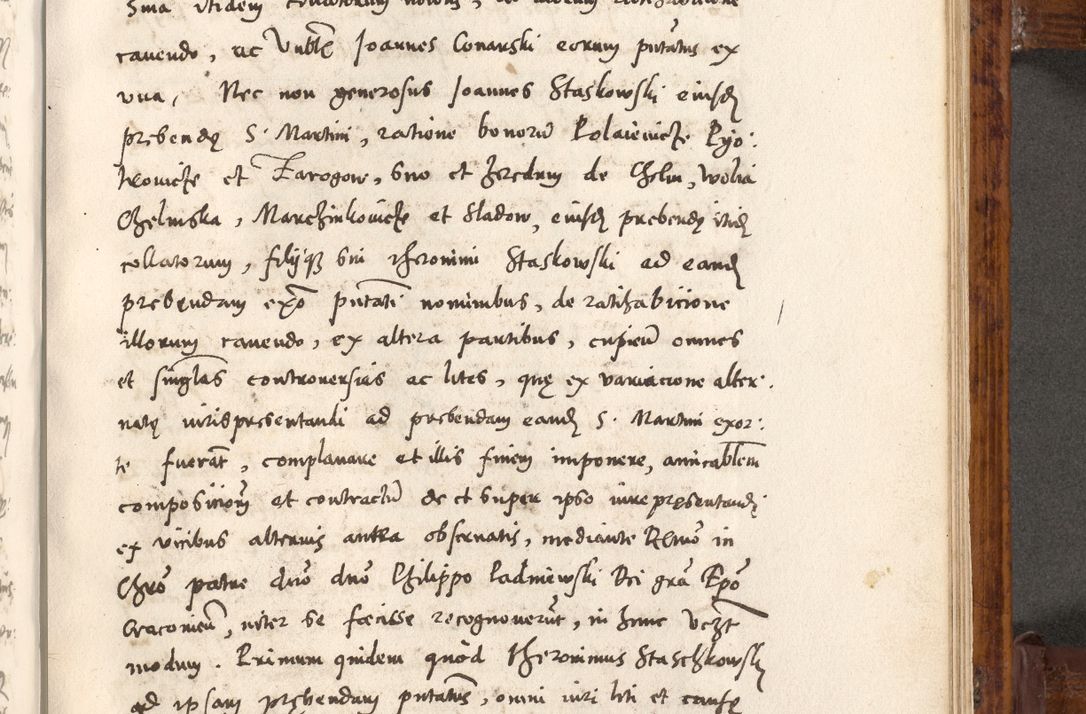 Sua itidem collatorum nomine, de illorum ratihabitione
cauendo, ac Vnble Joannes Conarski eorum pntatus ex
vna, Nec non generosus Joannes Staskowski eiusd
prebendę S. Martini, ratione bonorū Polaieuicze Pyo:
trouicze et Tarogow, suo et heredum de Chelm, Wolia
Chelmska, Marczinkouicze et Sladow, eiusd prebendę itid
collatorum, filijq3 sui Hieronimi Staskowski ad eand
prebendam exō pntati nominibus, de ratihabicione
illorum cauendo, ex altera partibus, cupieñ omnes
et singlas controuersias ac lites, quę ex variacione alter:
natę iurispresentandi ad prebendam eand S. Martini exor:
te fuerāt, complanare et illis finem imponere, amicablem
compositionem et contractū de et super ipso iure presentandi
ex vicibus alternis antea obseruatis, mediante Rmo in
Chro patre dno dno Philippo Padniewski Dei gra Epo
Cracouień, inter se fecisse recognouerūt, in hunc
modum. Primum quidem quod Hieronimus Staschkowski
ad ipsam prebendam pntatus, omni iuri liti et causę